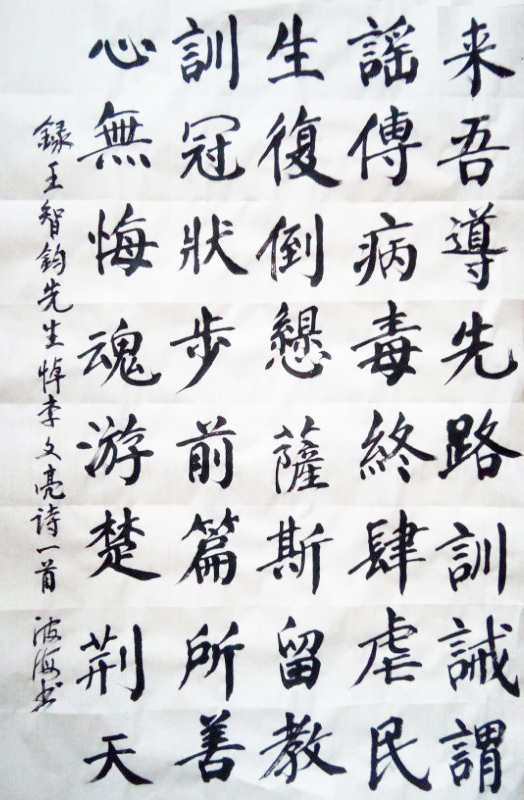 来吾導先路訓誡謂
謠傳病毒終肆虐民
生復倒懸薩斯留教
訓冠狀步前篇所善
心無悔魂游楚荆天
録王智鈞先生悼李文亮詩一首 波海书